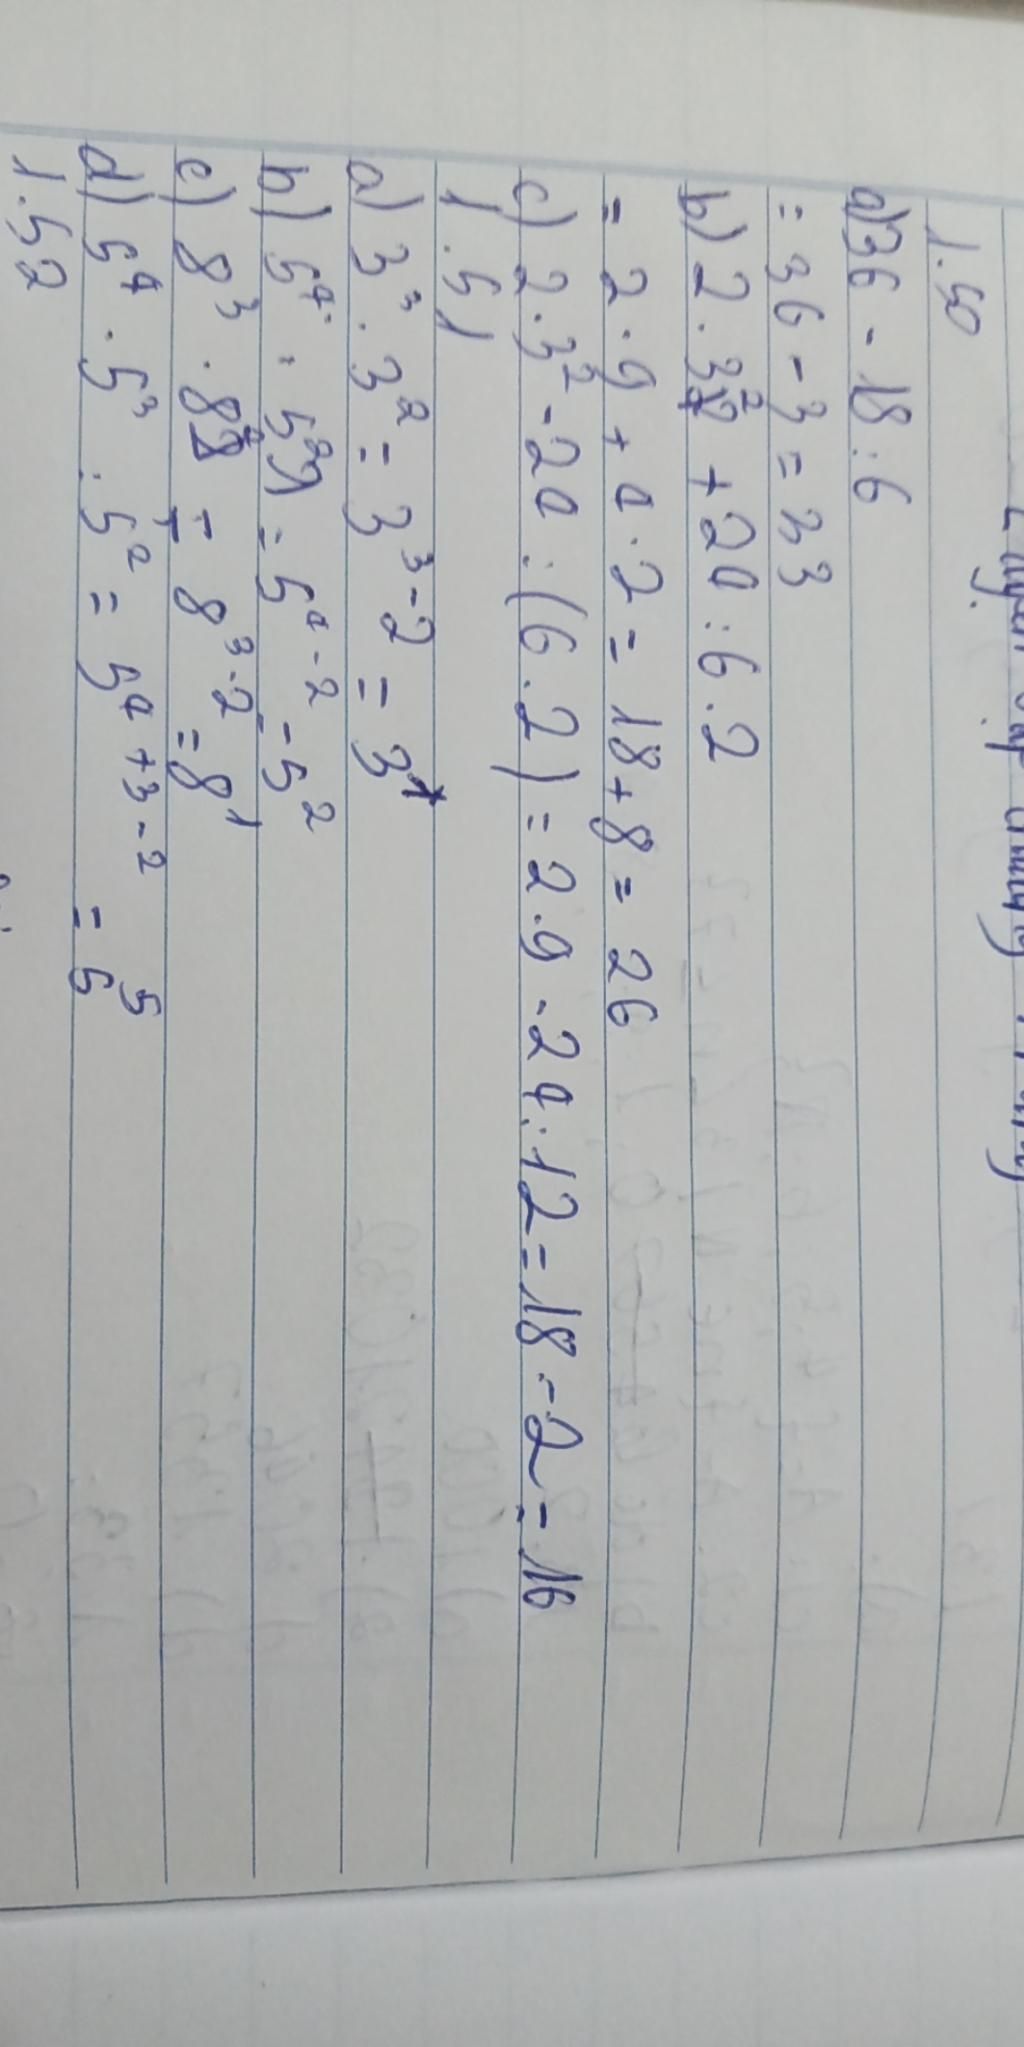 Luyện tập chung
1.50
a) 36 - 18 : 6
= 36 - 3 = 33
b) 2 . 3² + 24 : 6 . 2
= 2 . 9 + 4 . 2 = 18 + 8 = 26
c) 2 . 3² - 24 : (6 . 2) = 2 . 9 - 24 : 12 = 18 - 2 = 16
1.51
a) 3³ . 3² = 3³⁻² = 3¹
b) 5⁴ : 5² = 5⁴⁻² = 5²
c) 8³ . 8² = 8³⁻² = 8¹
d) 5⁴ . 5³ : 5² = 5⁴⁺³⁻² = 5⁵
1.52